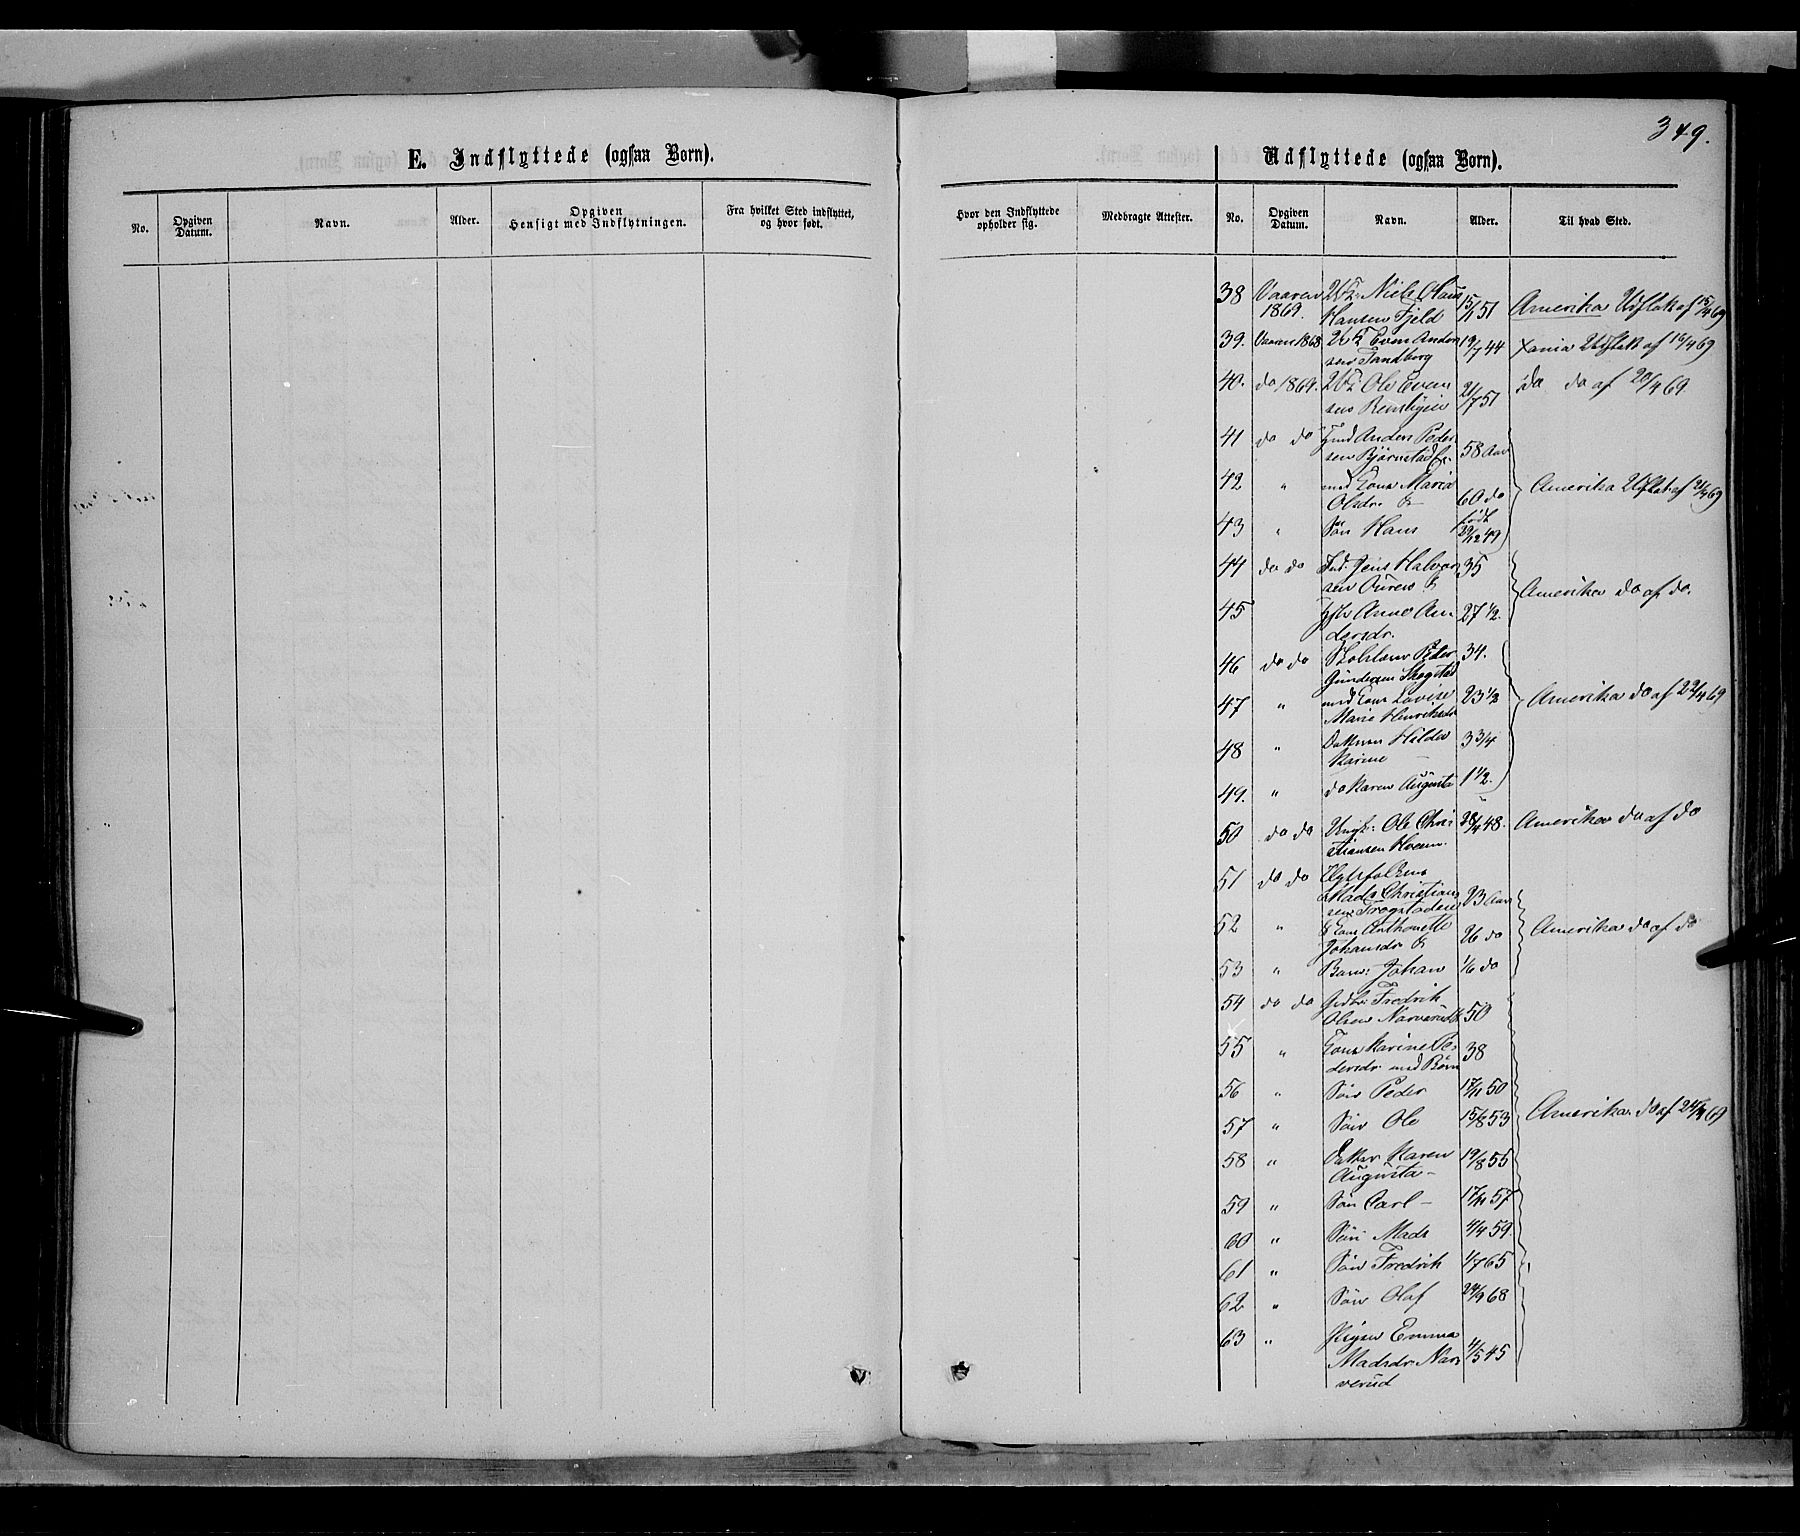 349.
E. Indflyttede (ogsaa Børn).
No. Opgiven Datum. Navn. Alder. Opgiven Hensigt med Indflytningen. Fra hvilket Sted indflyttet, og hvor født.
Hvor den Indflyttede opholder sig. Medbragte Attester.
Udflyttede (ogsaa Børn).
No. Opgiven Datum. Navn. Alder. Til hvad Sted.
38 Vaaren Niels Olaus 15/1 51 Amerika Udflatt af 15/4 69
1869. Hansen Fjeld
39. Vaaren 1868 Even Ander 19/7 44 Xania Udflatt af 16/4 69
sen Tandberg
40. do 1869. Ole Even 21/7 51 do do af 20/4 69
sen
41 do do Anders Peder
sen Bjørnstad & 58 Aar
42 " med Kone Maria Amerika Udflatt af 21/4 69
Olsdr. & 60 do
43 " Søn Hans født 29/12 49
44 do do Ind. Jens Halvor 35
sen &
45 Anne An 27 1/2. Amerika do af do.
dersdr.
46 do do Peder 34.
Gundersen Skogstad
47 " med Kone Lovise 23 1/2 Amerika do af 22/4 69
Marie Henriksdr
48 " Datteren Hilda 3 3/4
Karine —
49. " do Karen Augusta 1 1/2.
50 do do Ungk: Ole Chri 28/4 48. Amerika do af do
stiansen Hoem.
51 do do
Mads Christian 23 Aar
sen Trogstadeie
52 " & Kone Anthonette 26 do Amerika do af do
Johansdr &
53 " Barn: Johan 1/6 do
54 do do Fredrik
Olsen Narverud & 50
55 " Kone Karine Pe 38
dersdr. med Børn
56 " Søn Peder 17/11 50
57 " Søn Ole 15/8 53 Amerika do af 24/4 69
58 " Datter Karen 19/8 55
Augusta —
59 " Søn Carl — 17/11 57
60 " Søn Mads 4/4 59
61 " Søn Fredrik 1/7 65
62 " Søn Olaf 24/9 68
63 " Pigen Emma
Madsdr. Nar 4/5 45
verud